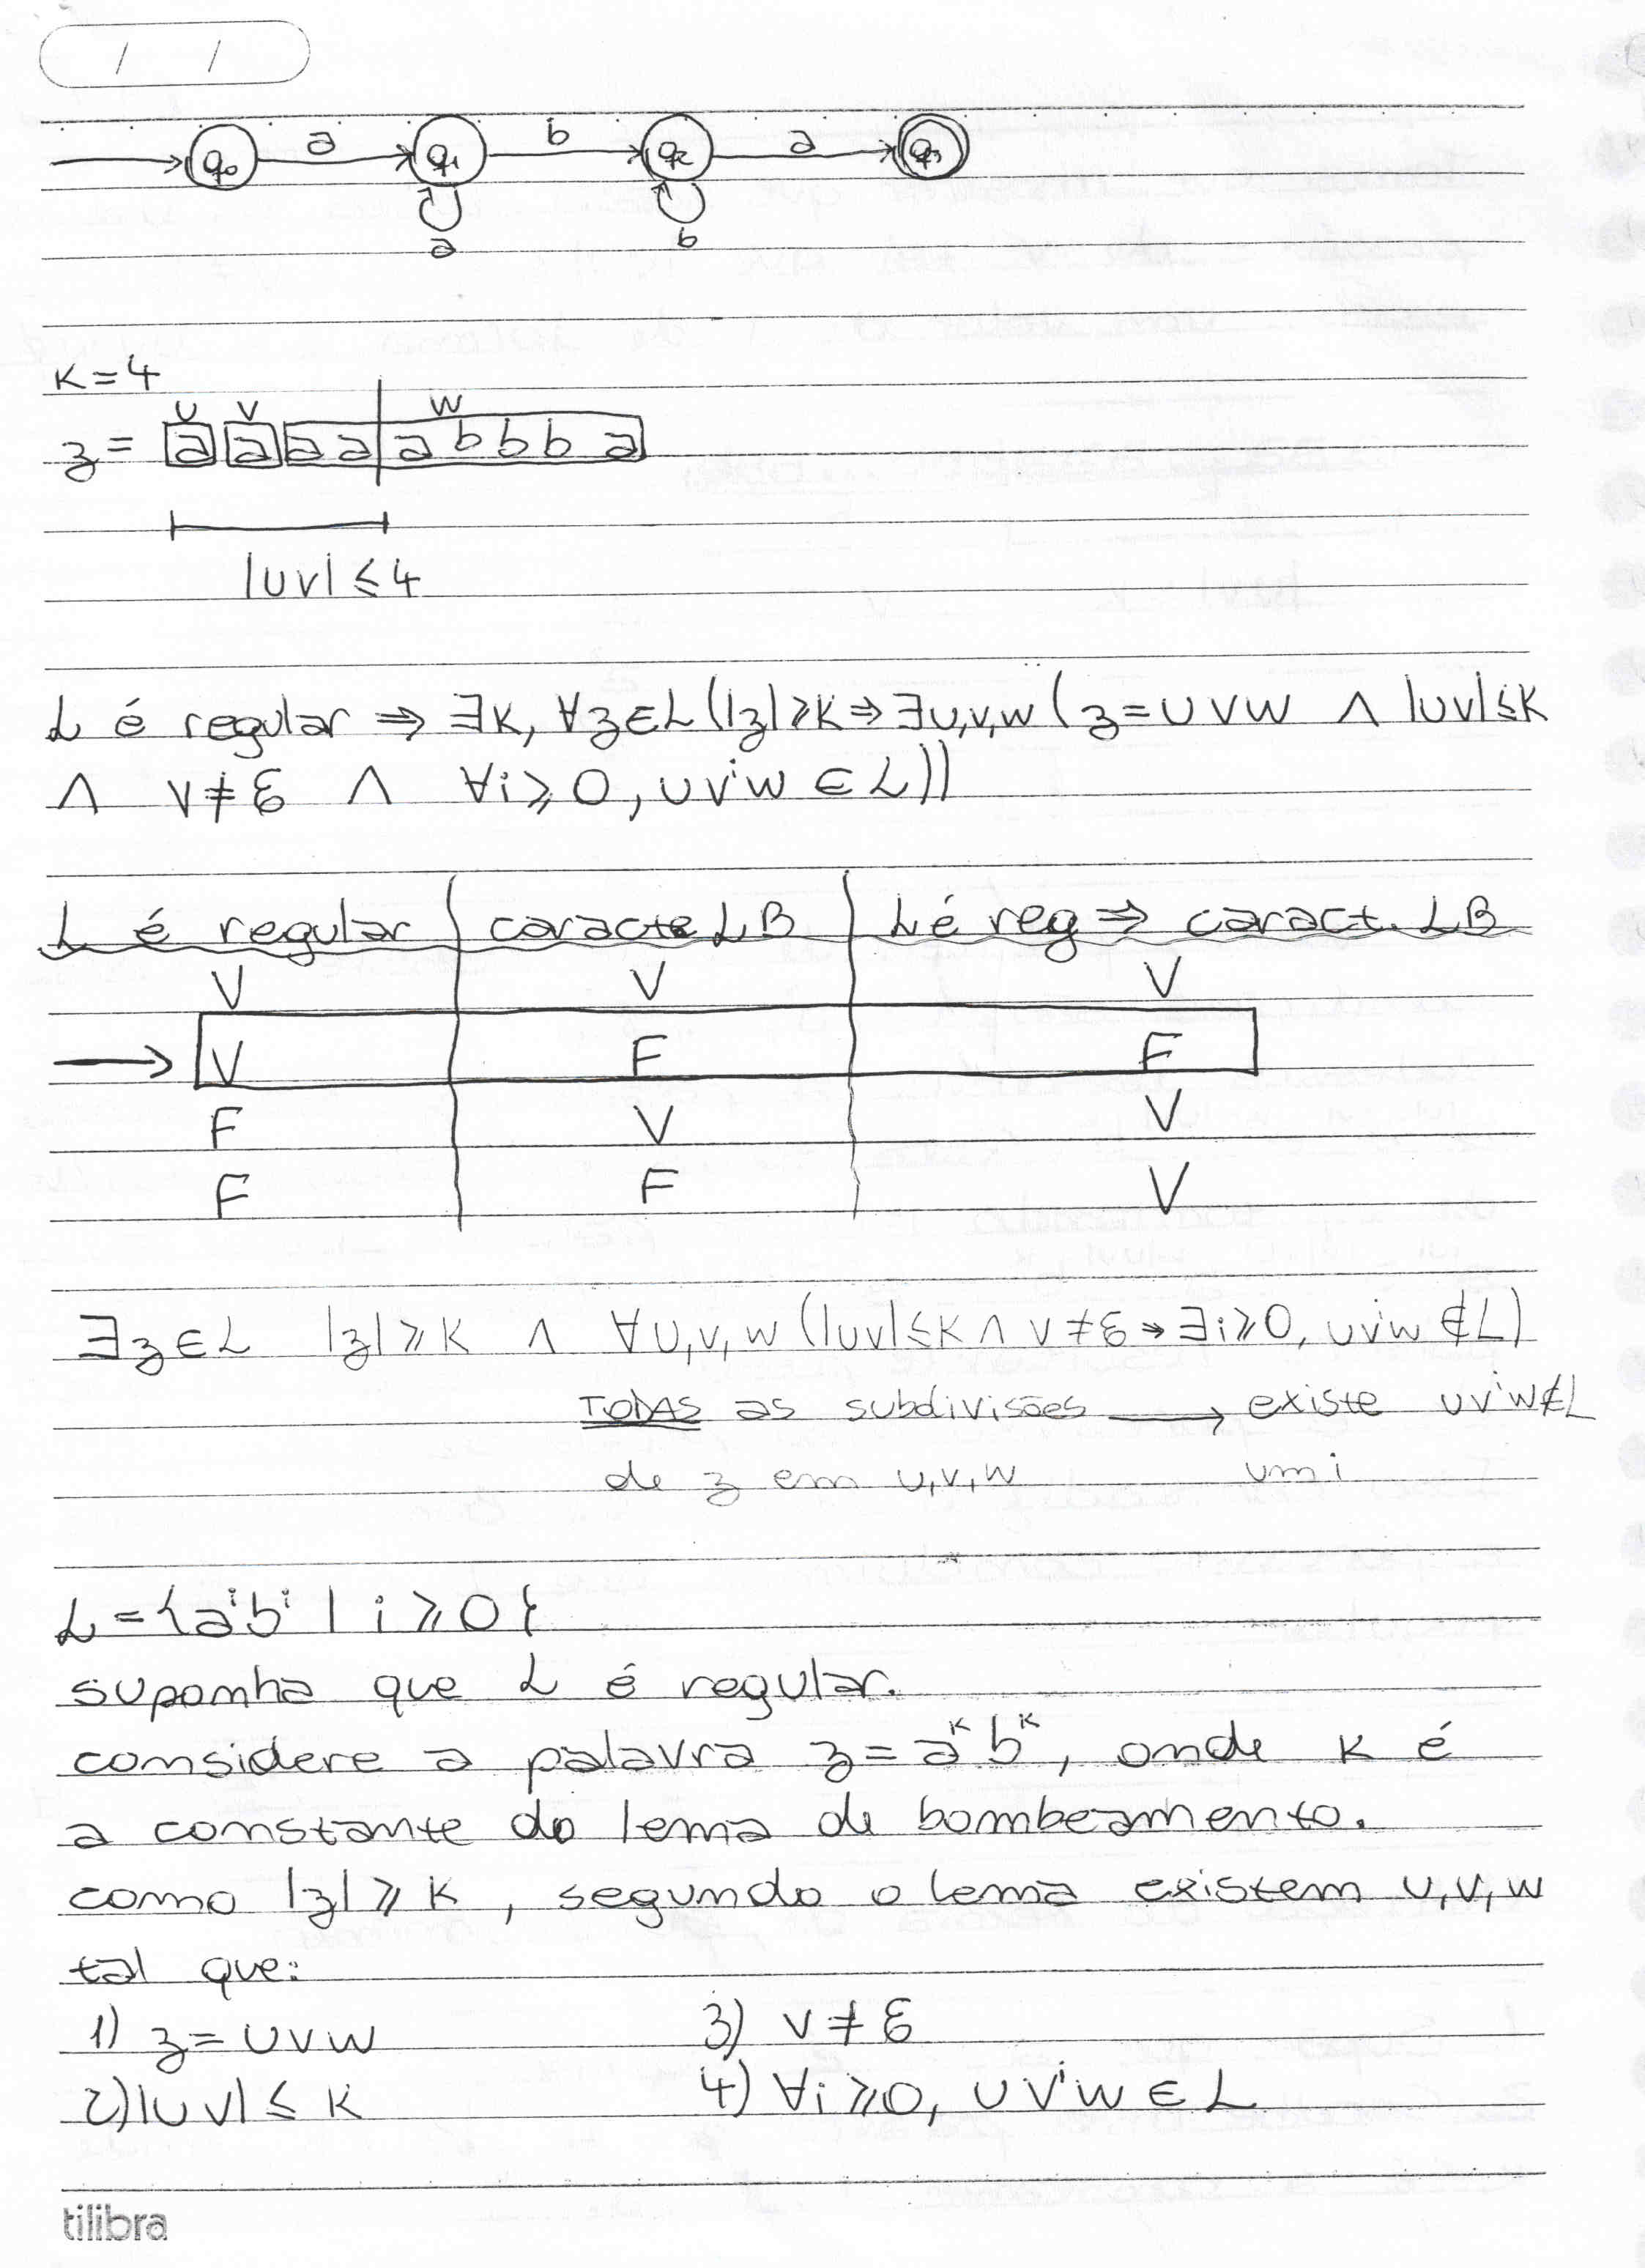 / /
q₀ a q₁ b q₂ a q₃
a b
K=4
u v w
z = a a a a a b b b a
|uv| ≤ 4
L é regular ⇒ ∃K, ∀z∈L (|z|≥K ⇒ ∃u,v,w (z=uvw ∧ |uv|≤K
∧ v≠ε ∧ ∀i≥0, uvⁱw ∈ L))
L é regular caracte LB L é reg ⇒ caract. LB
V V V
→ V F F
F V V
F F V
∃z∈L |z|≥K ∧ ∀u,v,w (|uv|≤K ∧ v≠ε → ∃i≥0, uvⁱw ∉ L)
TODAS as subdivisões → existe uvⁱw∉L
de z em u,v,w um i
L={aⁱbⁱ | i≥0}
suponha que L é regular.
considere a palavra z=aᴷbᴷ, onde K é
a constante do lema de bombeamento.
como |z|≥K, segundo o lema existem u,v,w
tal que:
1) z=uvw 3) v≠ε
2) |uv|≤K 4) ∀i≥0, uvⁱw∈L
tilibra